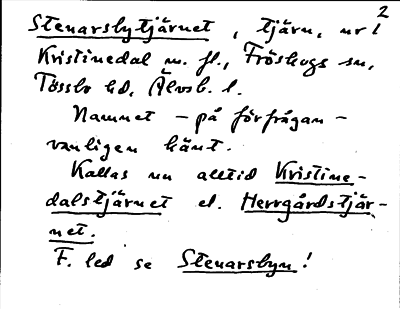 2
Stenarsbytjärnet, tjärn, nr 1
Kristinedal m. fl., Fröskogs sn,
Tössbo hd, Älvsb. l.
Namnet – på förfrågan –
vanligen känt.
Kallas nu alltid Kristine-
dalstjärnet el. Herrgårdstjär-
net.
F. led se Stenarsbyn!